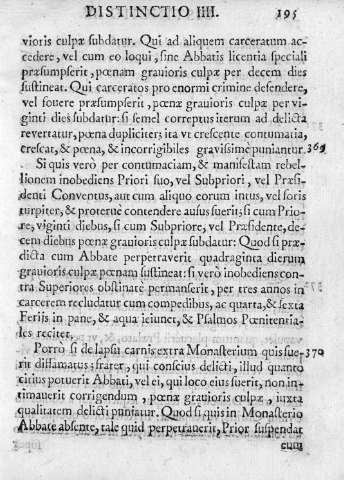 DISTINCTIO IIII. 195
vioris culpæ subdatur. Qui ad aliquem carceratum ac-
cedere, vel cum eo loqui, sine Abbatis licentia speciali
præsumpserit, pœnam grauioris culpæ per decem dies
sustineat. Qui carceratos pro enormi crimine defendere,
vel fouere præsumpserit, pœnæ grauioris culpæ per vi-
ginti dies subdatur: si semel correptus iterum ad delicta
revertatur, pœna dupliciter; ita vt crescente contumatia,
crescat, & pœna, & incorrigibiles gravissimè puniantur. 369
Si quis verò per contumaciam, & manifestam rebel-
lionem inobediens Priori suo, vel Subpriori, vel Præsi-
denti Conventus, aut cum aliquo eorum intus, vel foris
turpiter, & proteruè contendere ausus fuerit; si cum Prio-
re, viginti diebus, si cum Subpriore, vel Præsidente, de-
cem diebus pœnæ grauioris culpæ subdatur: Quod si præ-
dicta cum Abbate perpetraverit quadraginta dierum
grauioris culpæ pœnam sustineat: si verò inobediens con-
tra Superiores obstinatè permanserit, per tres annos in
carcerem recludatur cum compedibus, ac quarta, & sexta
Feriis in pane, & aqua ieiunet, & Psalmos Pœnitentia-
les recitet.
Porrò si de lapsu carnis extra Monasterium quis fue- 370
rit diffamatus; frater, qui conscius delicti, illud quanto
citius potuerit Abbati, vel ei, qui loco eius fuerit, non in-
timauerit corrigendum, pœnæ grauioris culpæ, iuxta
qualitatem delicti puniatur. Quod si quis in Monasterio
Abbate absente, tale quid perpetrauerit, Prior suspendat
eum